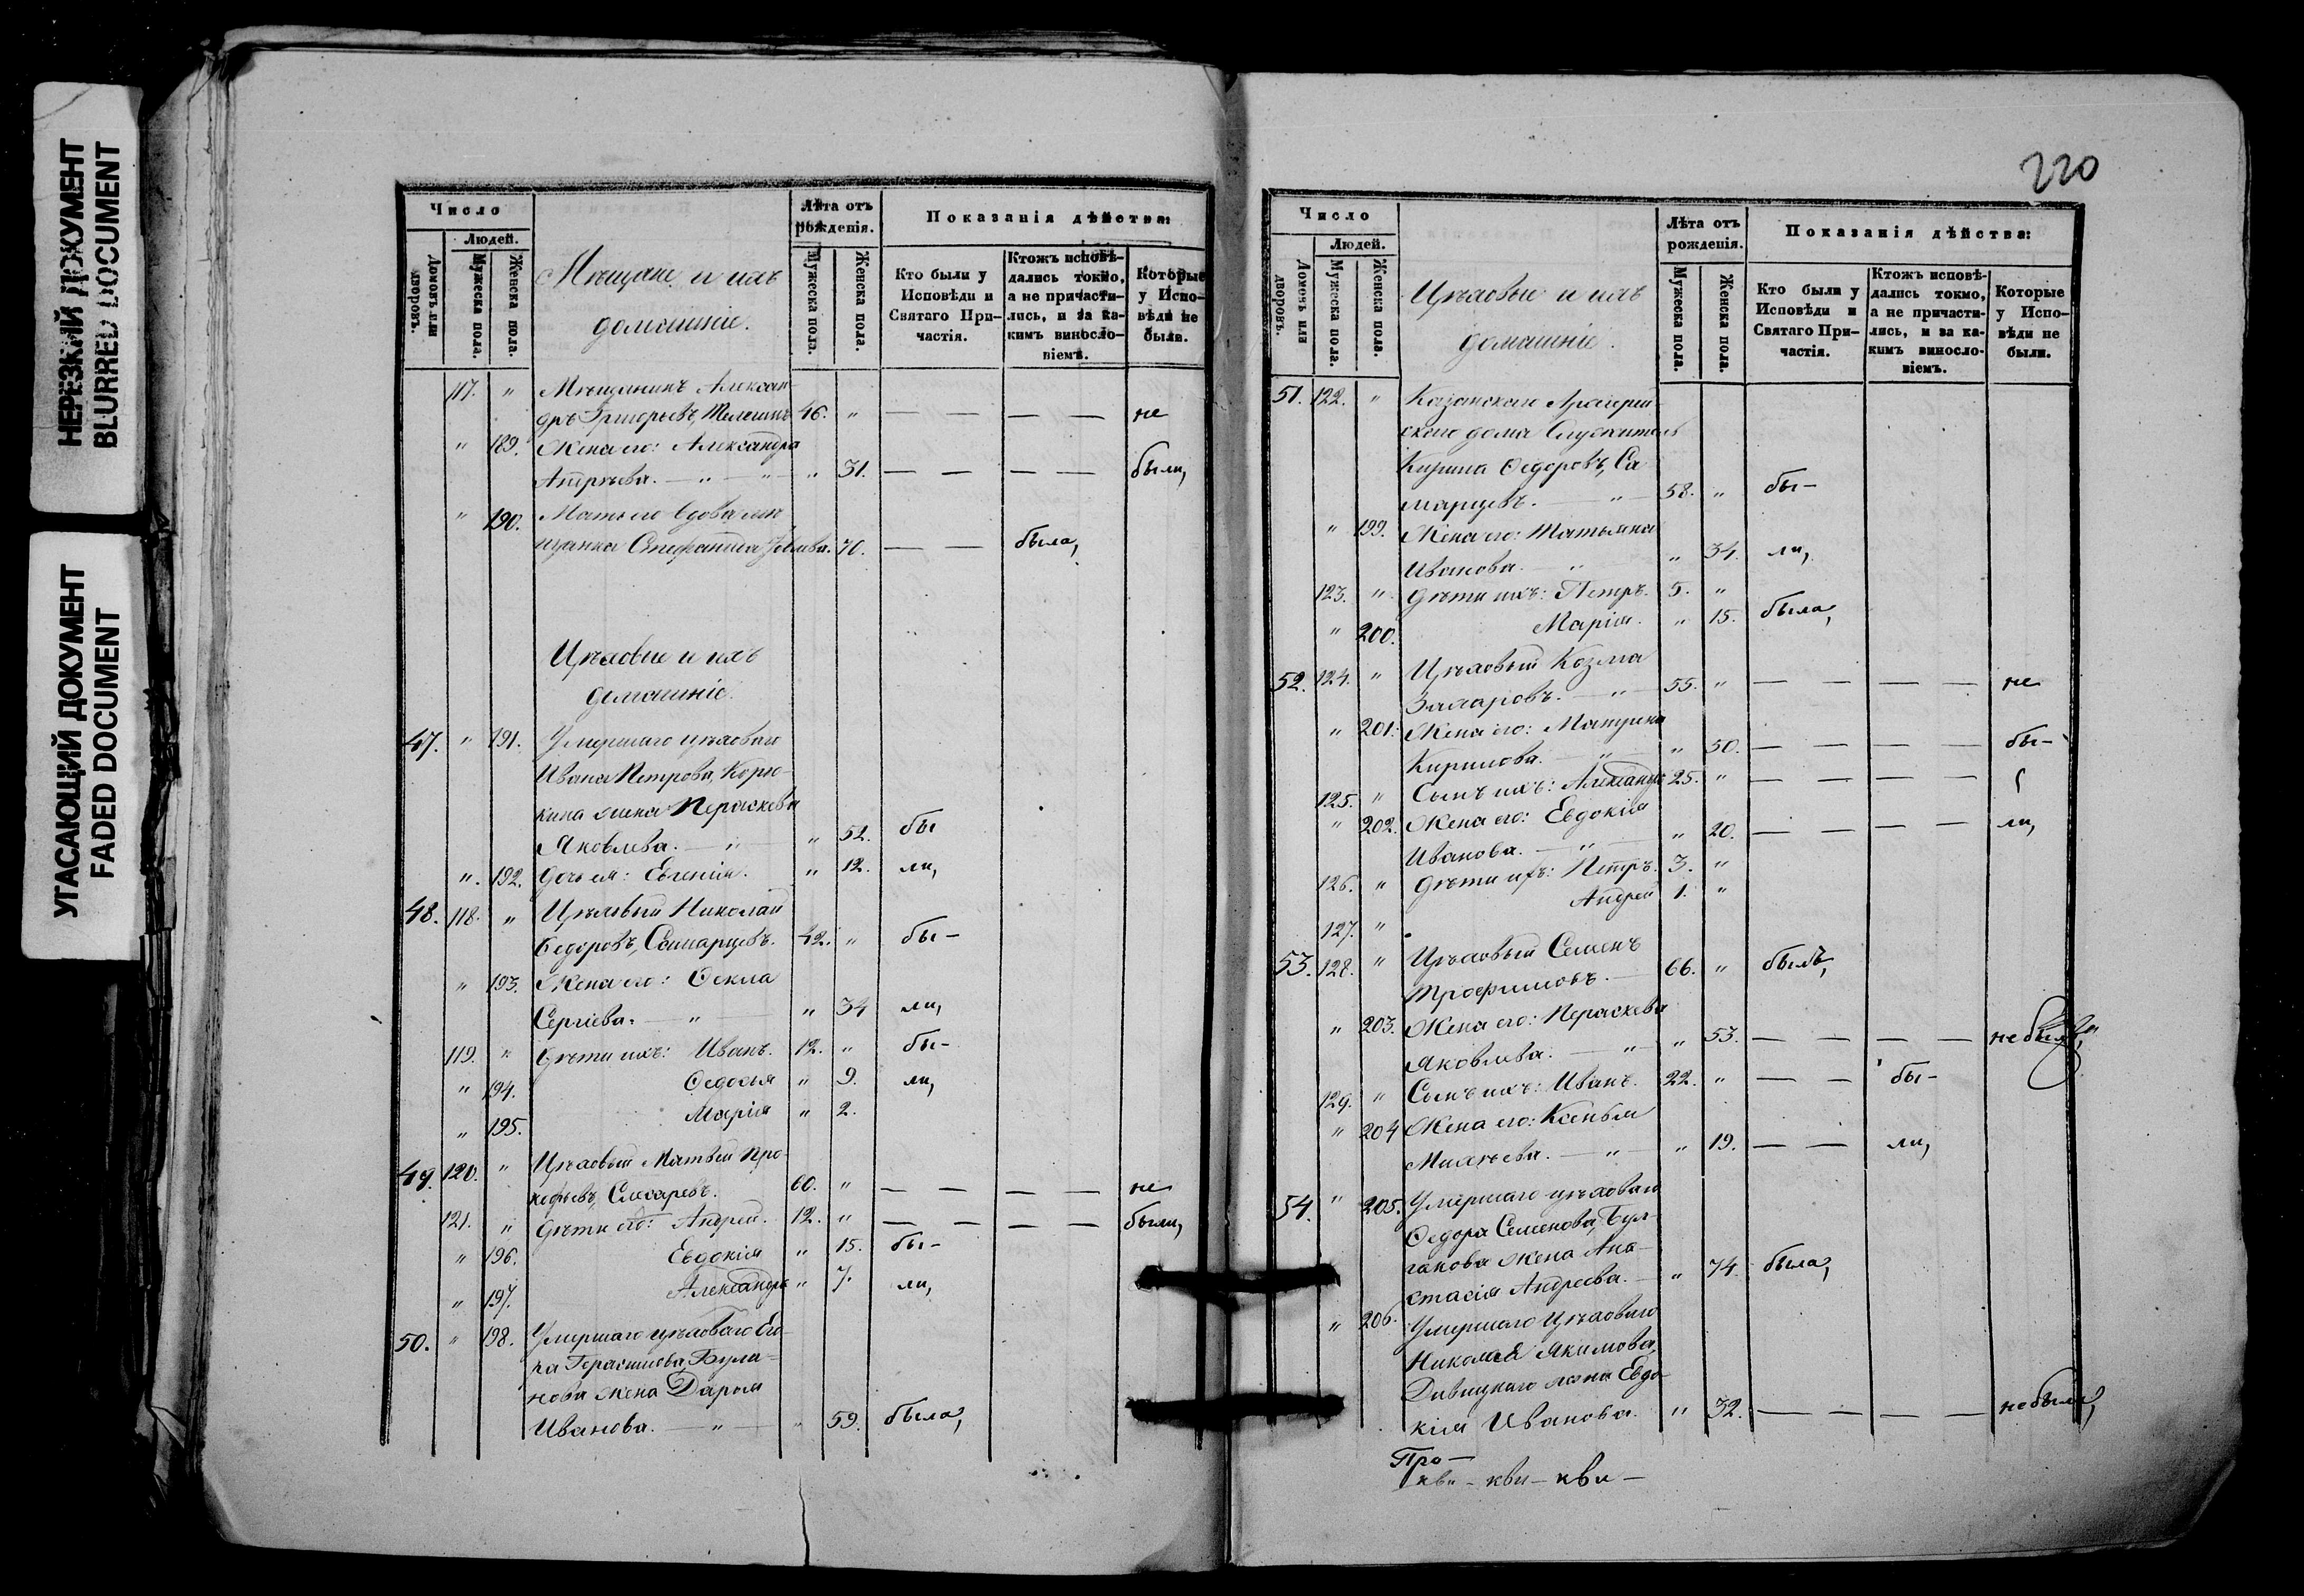 НЕРЕЗКИЙ ДОКУМЕНТ
BLURRED DOCUMENT
УГАСАЮЩИЙ ДОКУМЕНТ
FADED DOCUMENT
Число
Людей.
Домовъ или дворовъ.
Мужеска пола.
Женска пола.
Мѣщане и ихъ
домашніе.
Лѣта отъ рожденія.
Мужеска пола.
Женска пола.
Показанія дѣйства:
Кто были у Исповѣди и Святаго Причастія.
Ктожъ исповѣдались токмо, а не причастились, и за какимъ винословіемъ.
Которые у Исповѣди не были.
117. " Мѣщанинъ Алексан-
дръ Григорьевъ, 46. " — — — — не
" 189. Жена его: Александра
" 31. — — — — были,
" 190. Мать его вдова мѣ-
щанка Стефанида 70. — — была,
Цѣховые и ихъ
домашніе.
47. " 191. Умершаго цѣховаго
Ивана Петрова, Корю-
кина жена Пераскева
Яковлева. — " — " 52. бы
". 192. Дочь ея: Евгенія. " 12. ли,
48. 118. " Цѣховый Николай
Федоровъ, Самарцевъ. 42. " бы-
" 193. Жена его: Ѳекла
Сергіева. — " — " 34 ли,
119. " Дѣти ихъ: Иванъ. 12. " бы-
" 194. Ѳедосья " 9. ли,
" 195. Марія " 2.
49. 120. " Цѣховый Матвей Про-
кофьевъ, Слесаревъ. 60. " — — — — не
121. " Дѣти его: Андрей. 12. " — — — — были,
" 196. Евдокія " 15. бы-
" 197. Александра " 7. ли,
50. " 198. Умершаго цѣховаго Его-
ра Герасимова, Була-
нова жена Дарья
Иванова. — " — " 59. была,
220
Число
Людей.
Домовъ или дворовъ.
Мужеска пола.
Женска пола.
Цѣховые и ихъ
домашніе.
Лѣта отъ рожденія.
Мужеска пола.
Женска пола.
Показанія дѣйства:
Кто были у Исповѣди и Святаго Причастія.
Ктожъ исповѣдались токмо, а не причастились, и за какимъ винословіемъ.
Которые у Исповѣди не были.
51. 122. " Казанскаго Архіерей-
скаго дома Служитель
Кирила Ѳедоровъ, Са-
марцевъ. — " — 58. " бы-
" 199. Жена его: Татьяна
Иванова. — " — " 34. ли,
123. " Дѣти ихъ: Петръ. 5. "
" 200. Марія. " 15. была,
52. 124. " Цѣховый Козма
Захаровъ. — " — 55. " — — — — не
" 201. Жена его: Матрена
Кирилова. — " — " 50. — — — — бы-
125. " Сынъ ихъ: Александръ 25. " — — — —
" 202. Жена его: Евдокія
Иванова. — " — " 20. — — — — ли,
126. " Дѣти ихъ: Петръ. 3. "
127. " Андрей 1. "
53. 128. " Цѣховый Семенъ
Трофимовъ. — 66. " былъ,
" 203. Жена его: Пераскева
Яковлева. — " — " 53. — — — — не была,
129. " Сынъ ихъ: Иванъ. 22. " — — бы-
" 204 Жена его: Ксенья
Михѣева. — " — " 19. — — ли,
54. " 205. Умершаго цѣховаго
Ѳедора Семенова, Бул-
гакова жена Ана-
стасія Андреева. — " 74. была,
" 206. Умершаго Цѣховаго
Николая Якимова,
Давицкаго жена Евдо-
кія Иванова. " 32. — — — — не была,
Про-
кви - кви - кви -